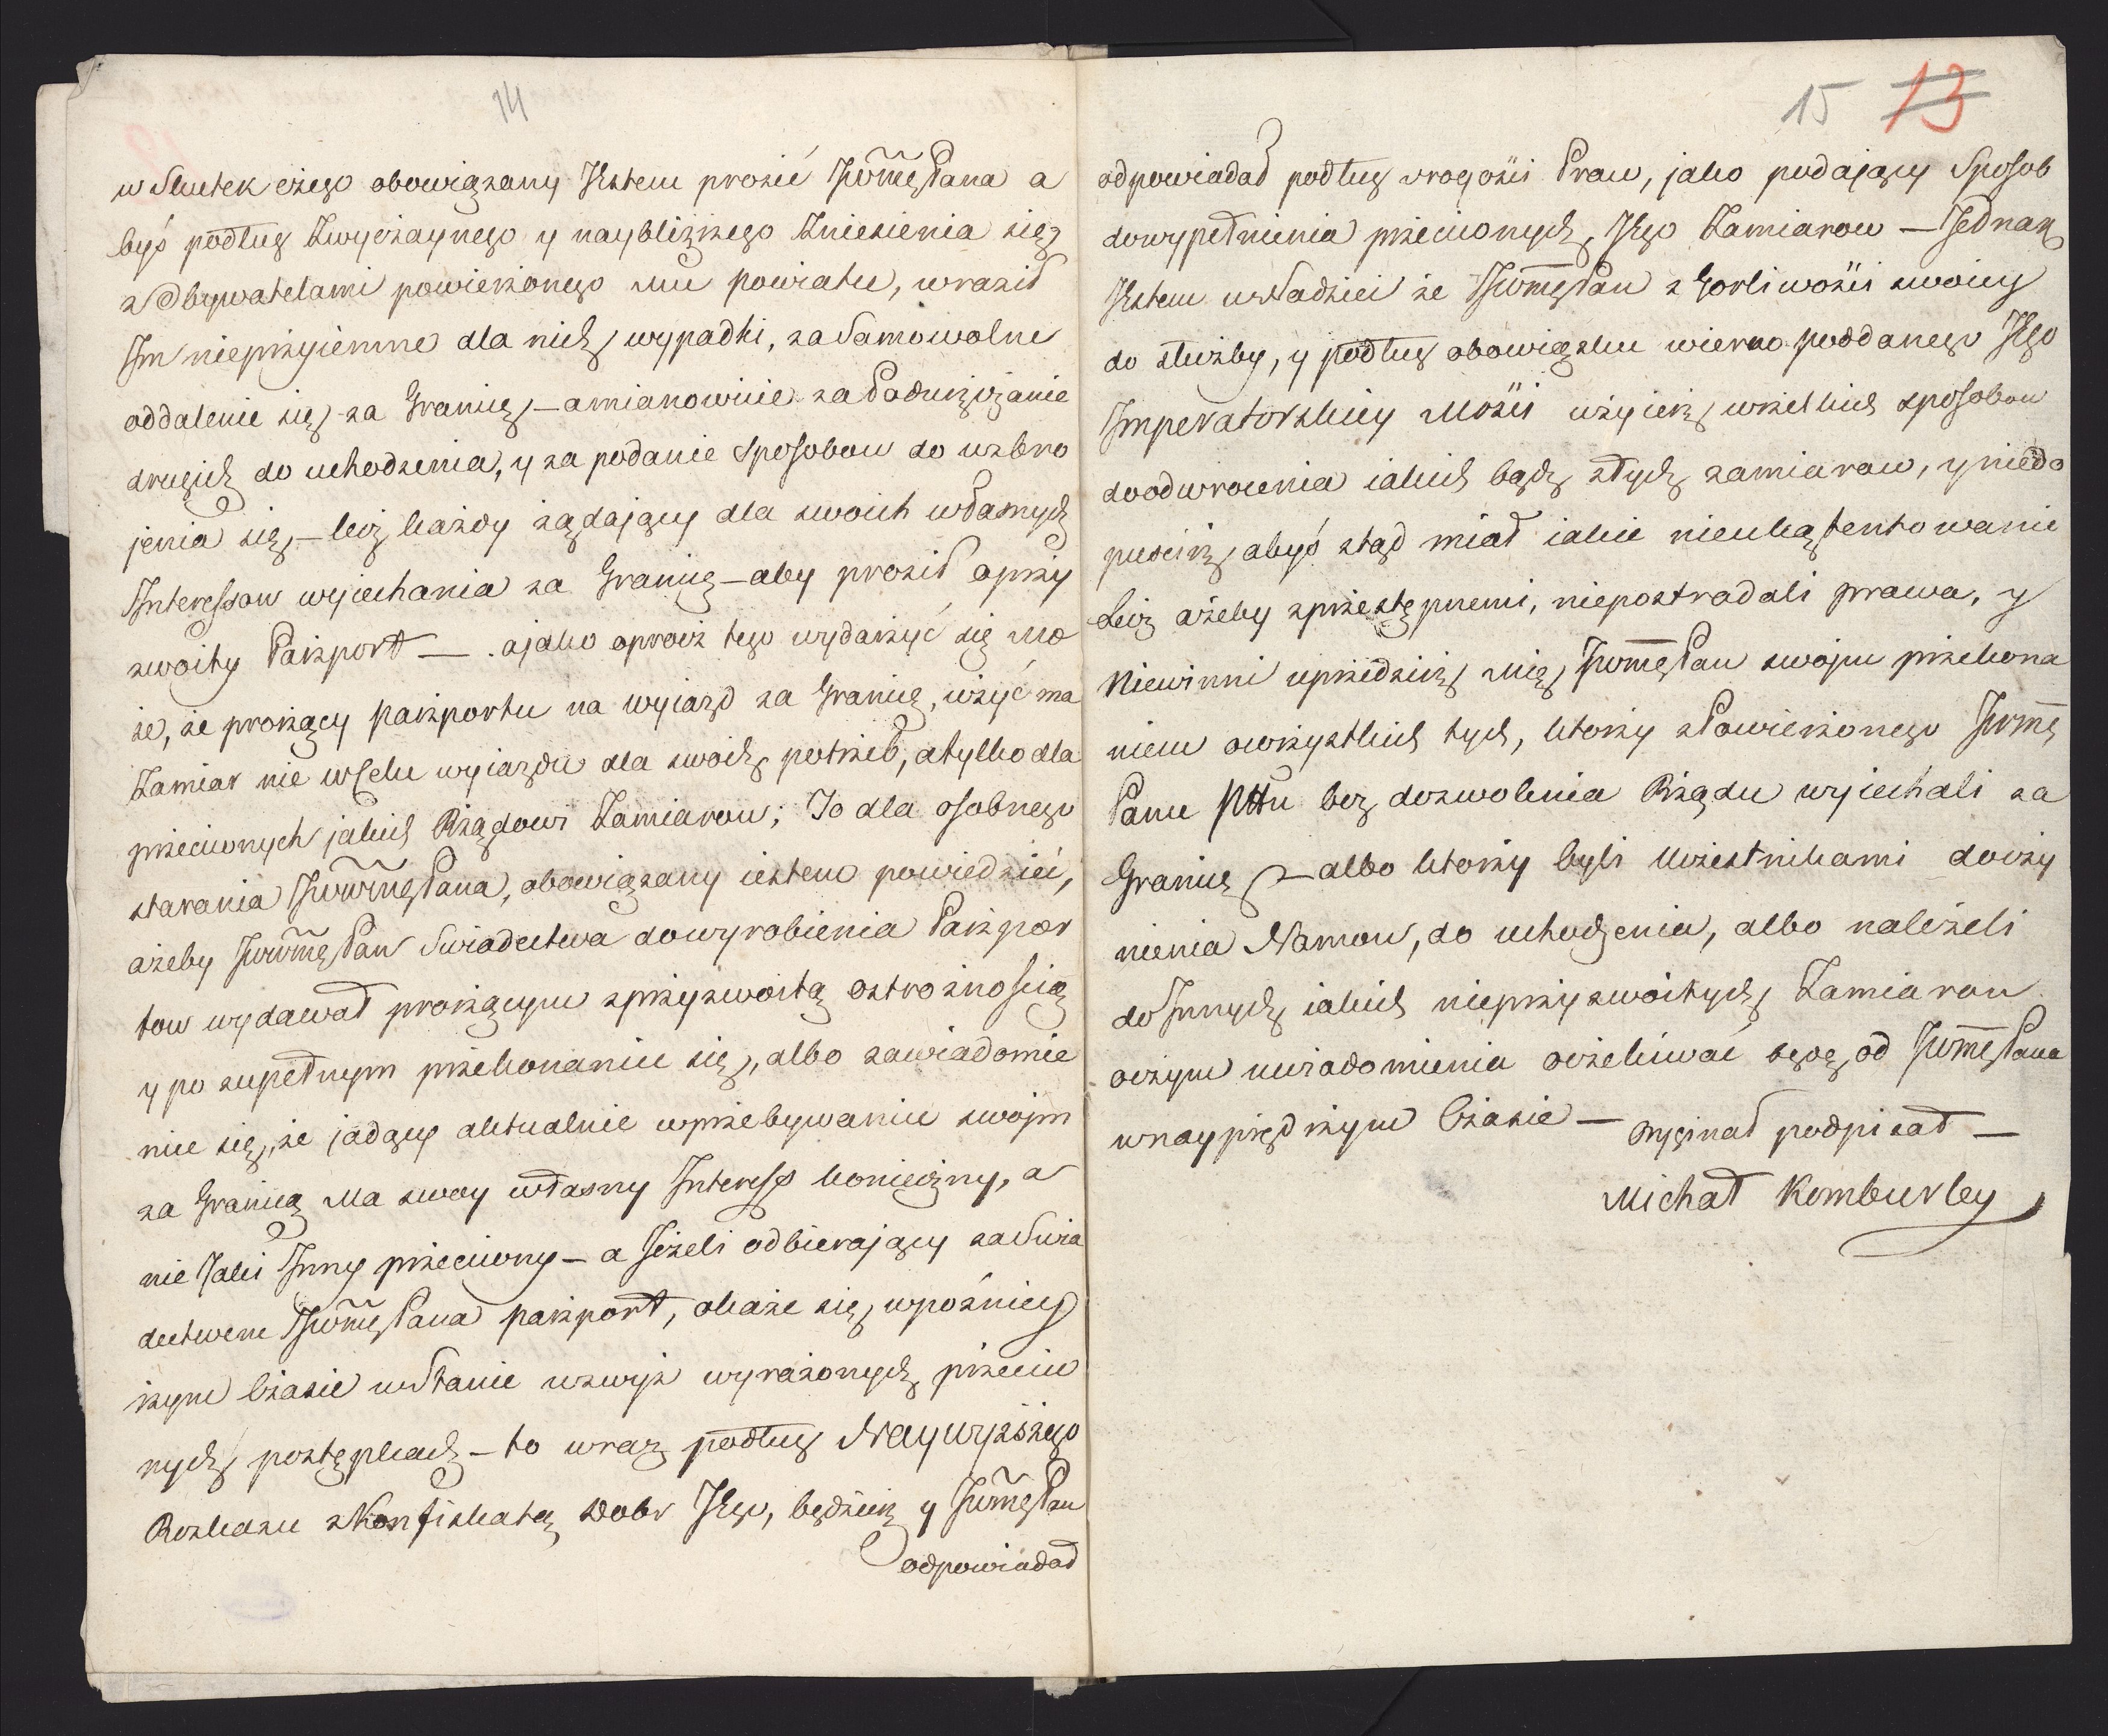 14
w Skutek czego obowiązany Jestem prosić JWme Pana a
byś podług Zwyczaynego y naybliższego Zniesienia się
z Obywatelami powierzonego mu powiatu, wraził
Im nieprzyiemne dla nich wypadki, za Samowolne
oddalenie się za Granicę, – amianowicie za Podmawianie
drugich do uchodzenia, y za podanie Sposobow do uzbro
jenia się, – lecz każdy żądający dla swoich własnych
Interessow wyiechania za Granicę – aby prosił o przy
zwoity Paszport — . ajako oprocz tego wydarzyć się mo
że, że proszący paszportu na wyiazd za Granicę, użyć ma
Zamiar nie w Celu wyiazdu dla swoich potrzeb, atylko dla
przeciwnych jakich Rządowi Zamiarow; To dla osobnego
starania JWWme Pana, obowiązany iestem powiedzieć,
ażeby JWWme Pan Swiadectwa dowyrobienia Paszpor
tow wydawał proszącym zprzyzwoitą ostrożnością
y po zupełnym przekonaniu się, albo zawiadomie
niu się, że jadący aktualnie wprzebywaniu swojm
za Granicą Ma swoy własny Interess konieczny, a
nie Jaki Inny przeciwny – a Jeżeli odbierający za Swia
dectwem JWme Pana paszport, okaże się wpoźniey
szym Czasie w Stanie wzwyż wyrażonych przeciw
nych postępkach – to wraz podług Naywyższego
Rozkazu z Konfiskatą Dobr Jego, będziesz y JWme Pan
odpowiadał
15 13
odpowiadał podług srogości Praw, jako podający Sposob
dowypełnienia przeciwnych, Jego Zamiarow — Jednak
Jestem w Nadziei że JWme Pan z Gorliwości swoiey
do służby, y podług obowiązku wierno poddanego Jego
Imperatorskiey Mości użyiesz wszelkich sposobow
doodwrocenia iakich bądź złych zamiarow, y niedo
puscisz abyś ztąd miał iakie nieukątentowanie
Lecz ażeby zprzestępnemi, niepostradali prawa, y
Niewinni uprzedzisz mię JWme Pan swojm przekona
niem owszystkich tych, ktorzy z Powierzonego JWme
Panu Pttu bez dozwolenia Rządu wyiechali za
Granicę — albo ktorzy byli Uczestnikami doczy
nienia Namow, do uchodzenia, albo należeli
do Innych iakich nieprzyzwoitych Zamiarow
oczym uwiadomienia oczekiwać będę od JWme Pana
wnayprędszym Czasie — Orjginał podpisał —
Michał Komburley